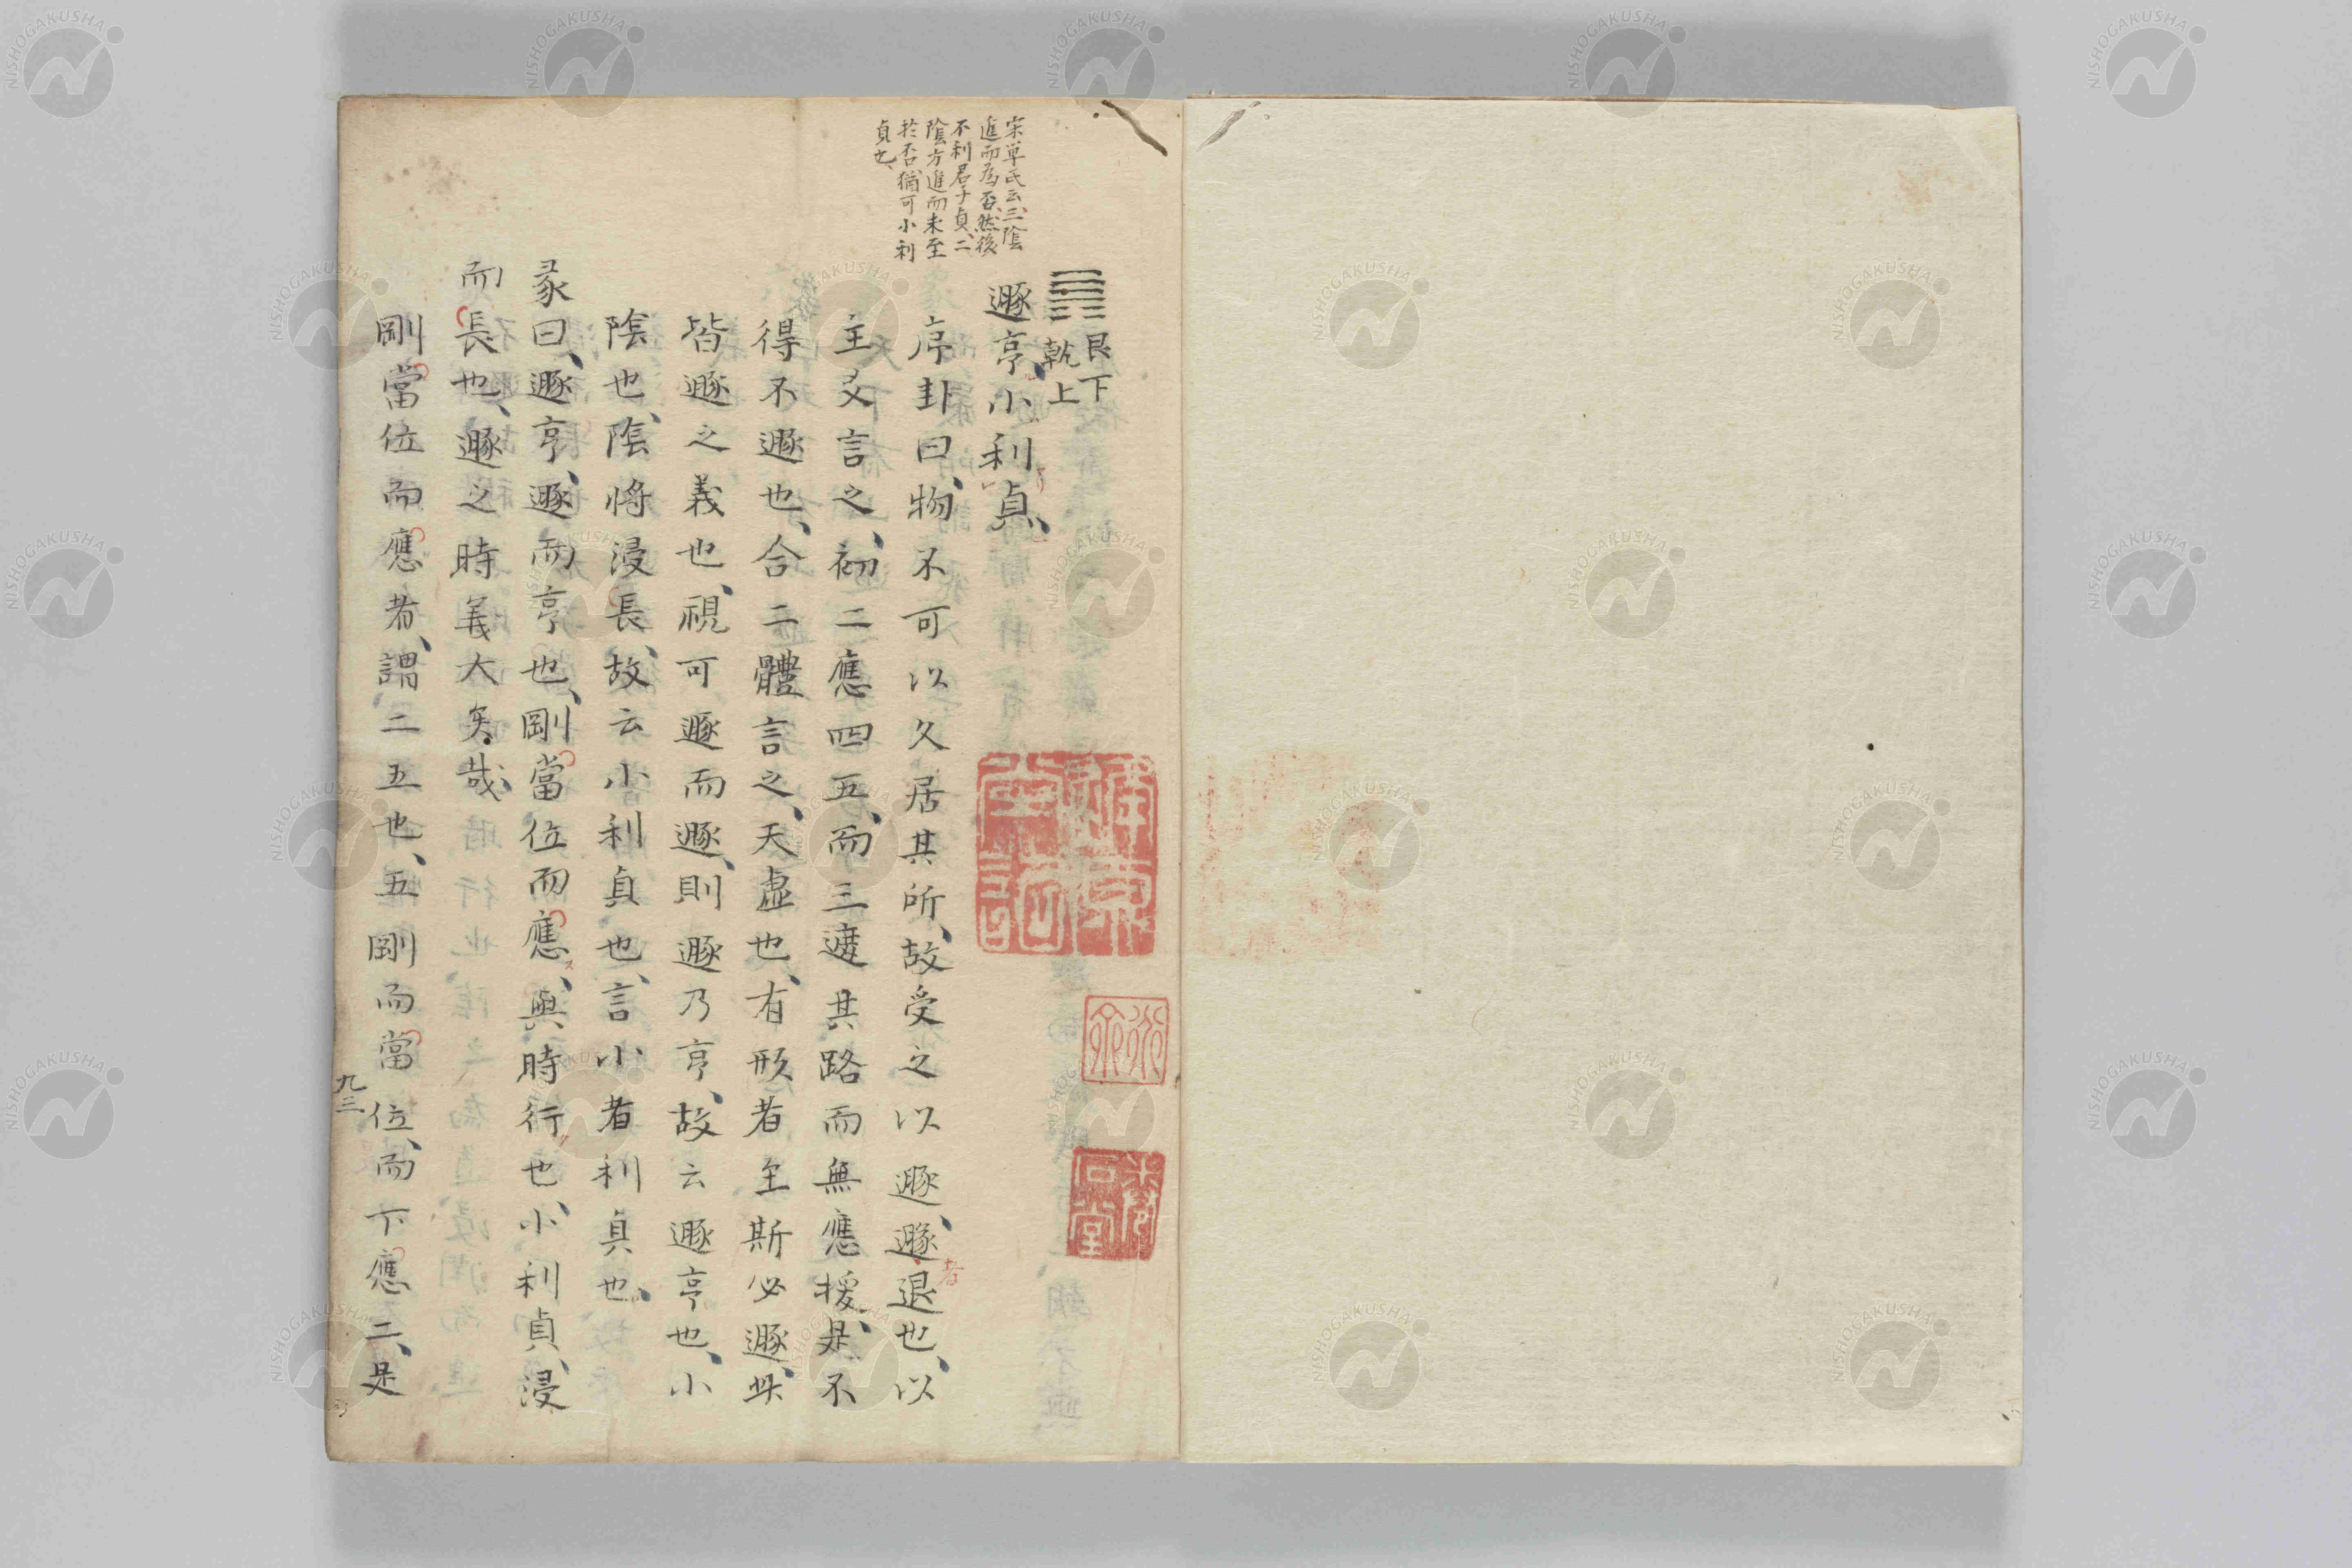 宋單氏云、三陰
進而為否、然後
不利君子貞、二
陰方進而未至
於否、猶可小利
貞也、
艮下
乾上
遯亨、小利貞、
序卦曰、物不可以久居其所、故受之以遯、遯者退也、以
主爻言之、初二應四五、而三遮其路而無應援、是不
得不遯也、合二體言之、天虛也、有形者至斯必遯、
皆遯之義也、視可遯而遯、則遯乃亨、故云遯亨也、小
陰也、陰將浸長、故云小利貞也、言小者利貞也、
彖曰、遯亨、遯而亨也、剛當位而應、與時行也、小利貞、浸
而長也、遯之時義大矣哉、
剛當位而應者、謂二五也、五剛而當位、而下應二、是
九三
NISHOGAKUSHA